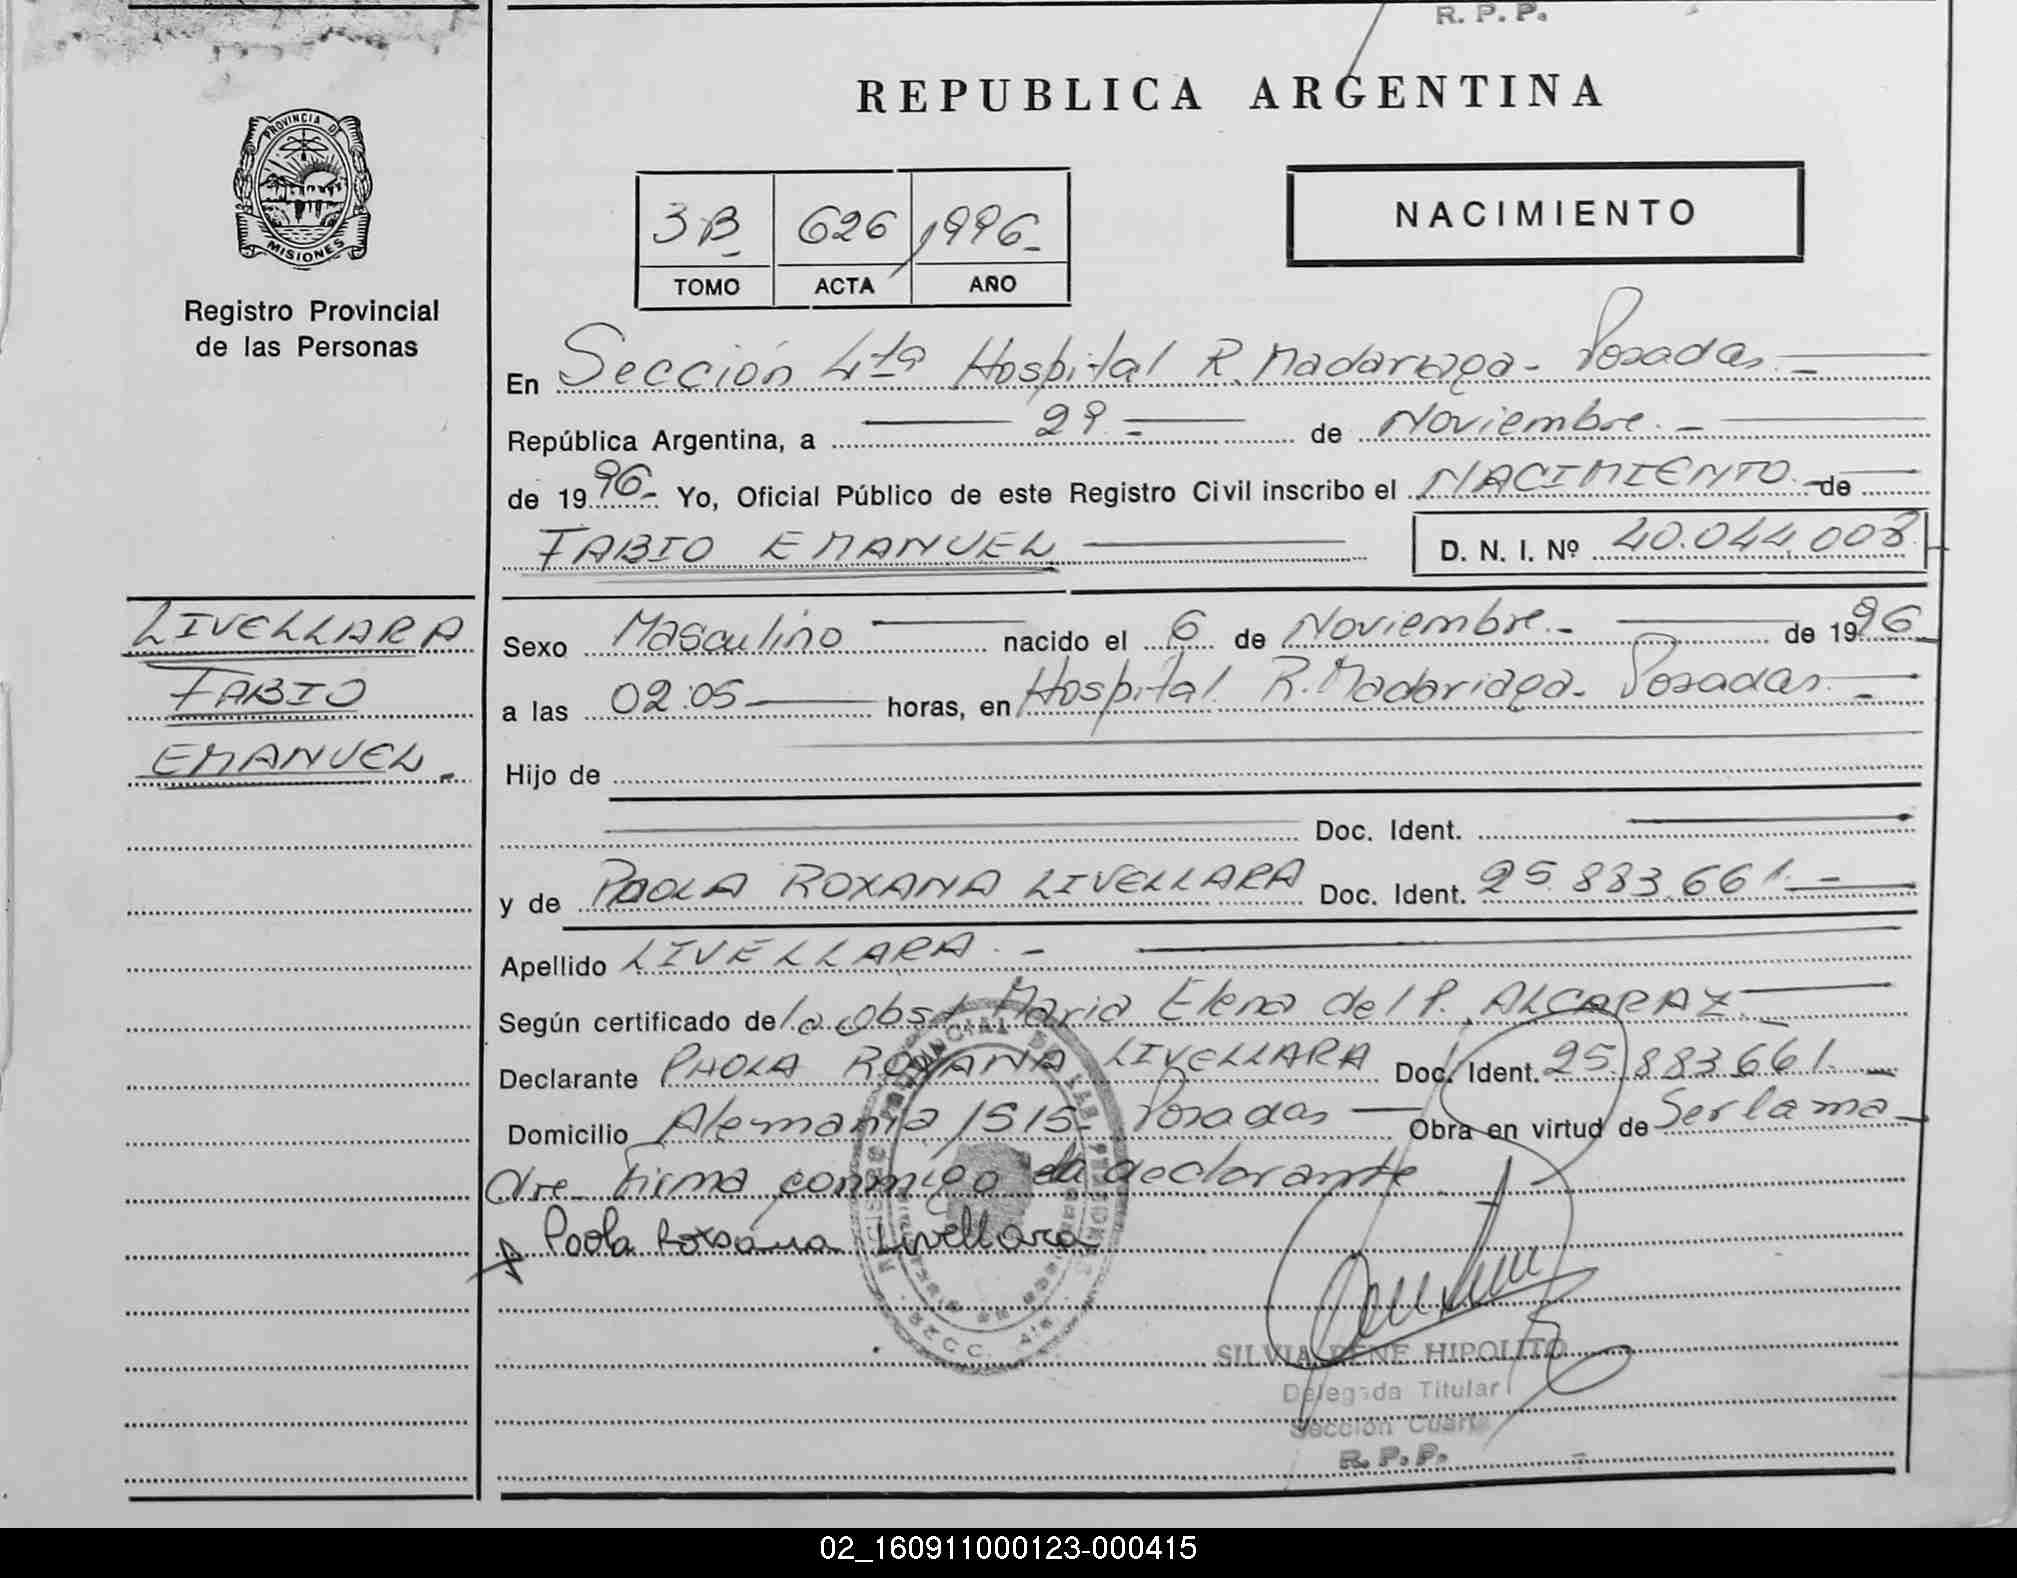 R. P. P.
REPUBLICA ARGENTINA
PROVINCIA DE
MISIONES
Registro Provincial
de las Personas
3B 626 1996
TOMO ACTA AÑO
NACIMIENTO
En Sección 4ta Hospital R. Madariaga - Posadas. -
República Argentina, a 29 - de Noviembre. -
de 1996 - Yo, Oficial Público de este Registro Civil inscribo el NACIMIENTO - de
FABIO EMANUEL D. N. I. Nº 40.044.008
LIVELLARA
FABIO
EMANUEL.
Sexo Masculino nacido el 6 de Noviembre. - de 1996
a las 02:05 horas, en Hospital R. Madariaga - Posadas. -
Hijo de
Doc. Ident.
y de PAOLA ROXANA LIVELLARA Doc. Ident. 25.883.661. -
Apellido LIVELLARA. -
Según certificado de la Obst María Elena del P. ALCARAZ -
Declarante PAOLA ROXANA LIVELLARA Doc. Ident. 25.883.661. -
Domicilio Alemania 1515 - Posadas Obra en virtud de Ser la ma-
dre firma conmigo la declarante
Paola Roxana Livellara
SILVIA RENE HIPOLITO
Delegada Titular
Sección Cuarta
R. P. P.
02_160911000123-000415